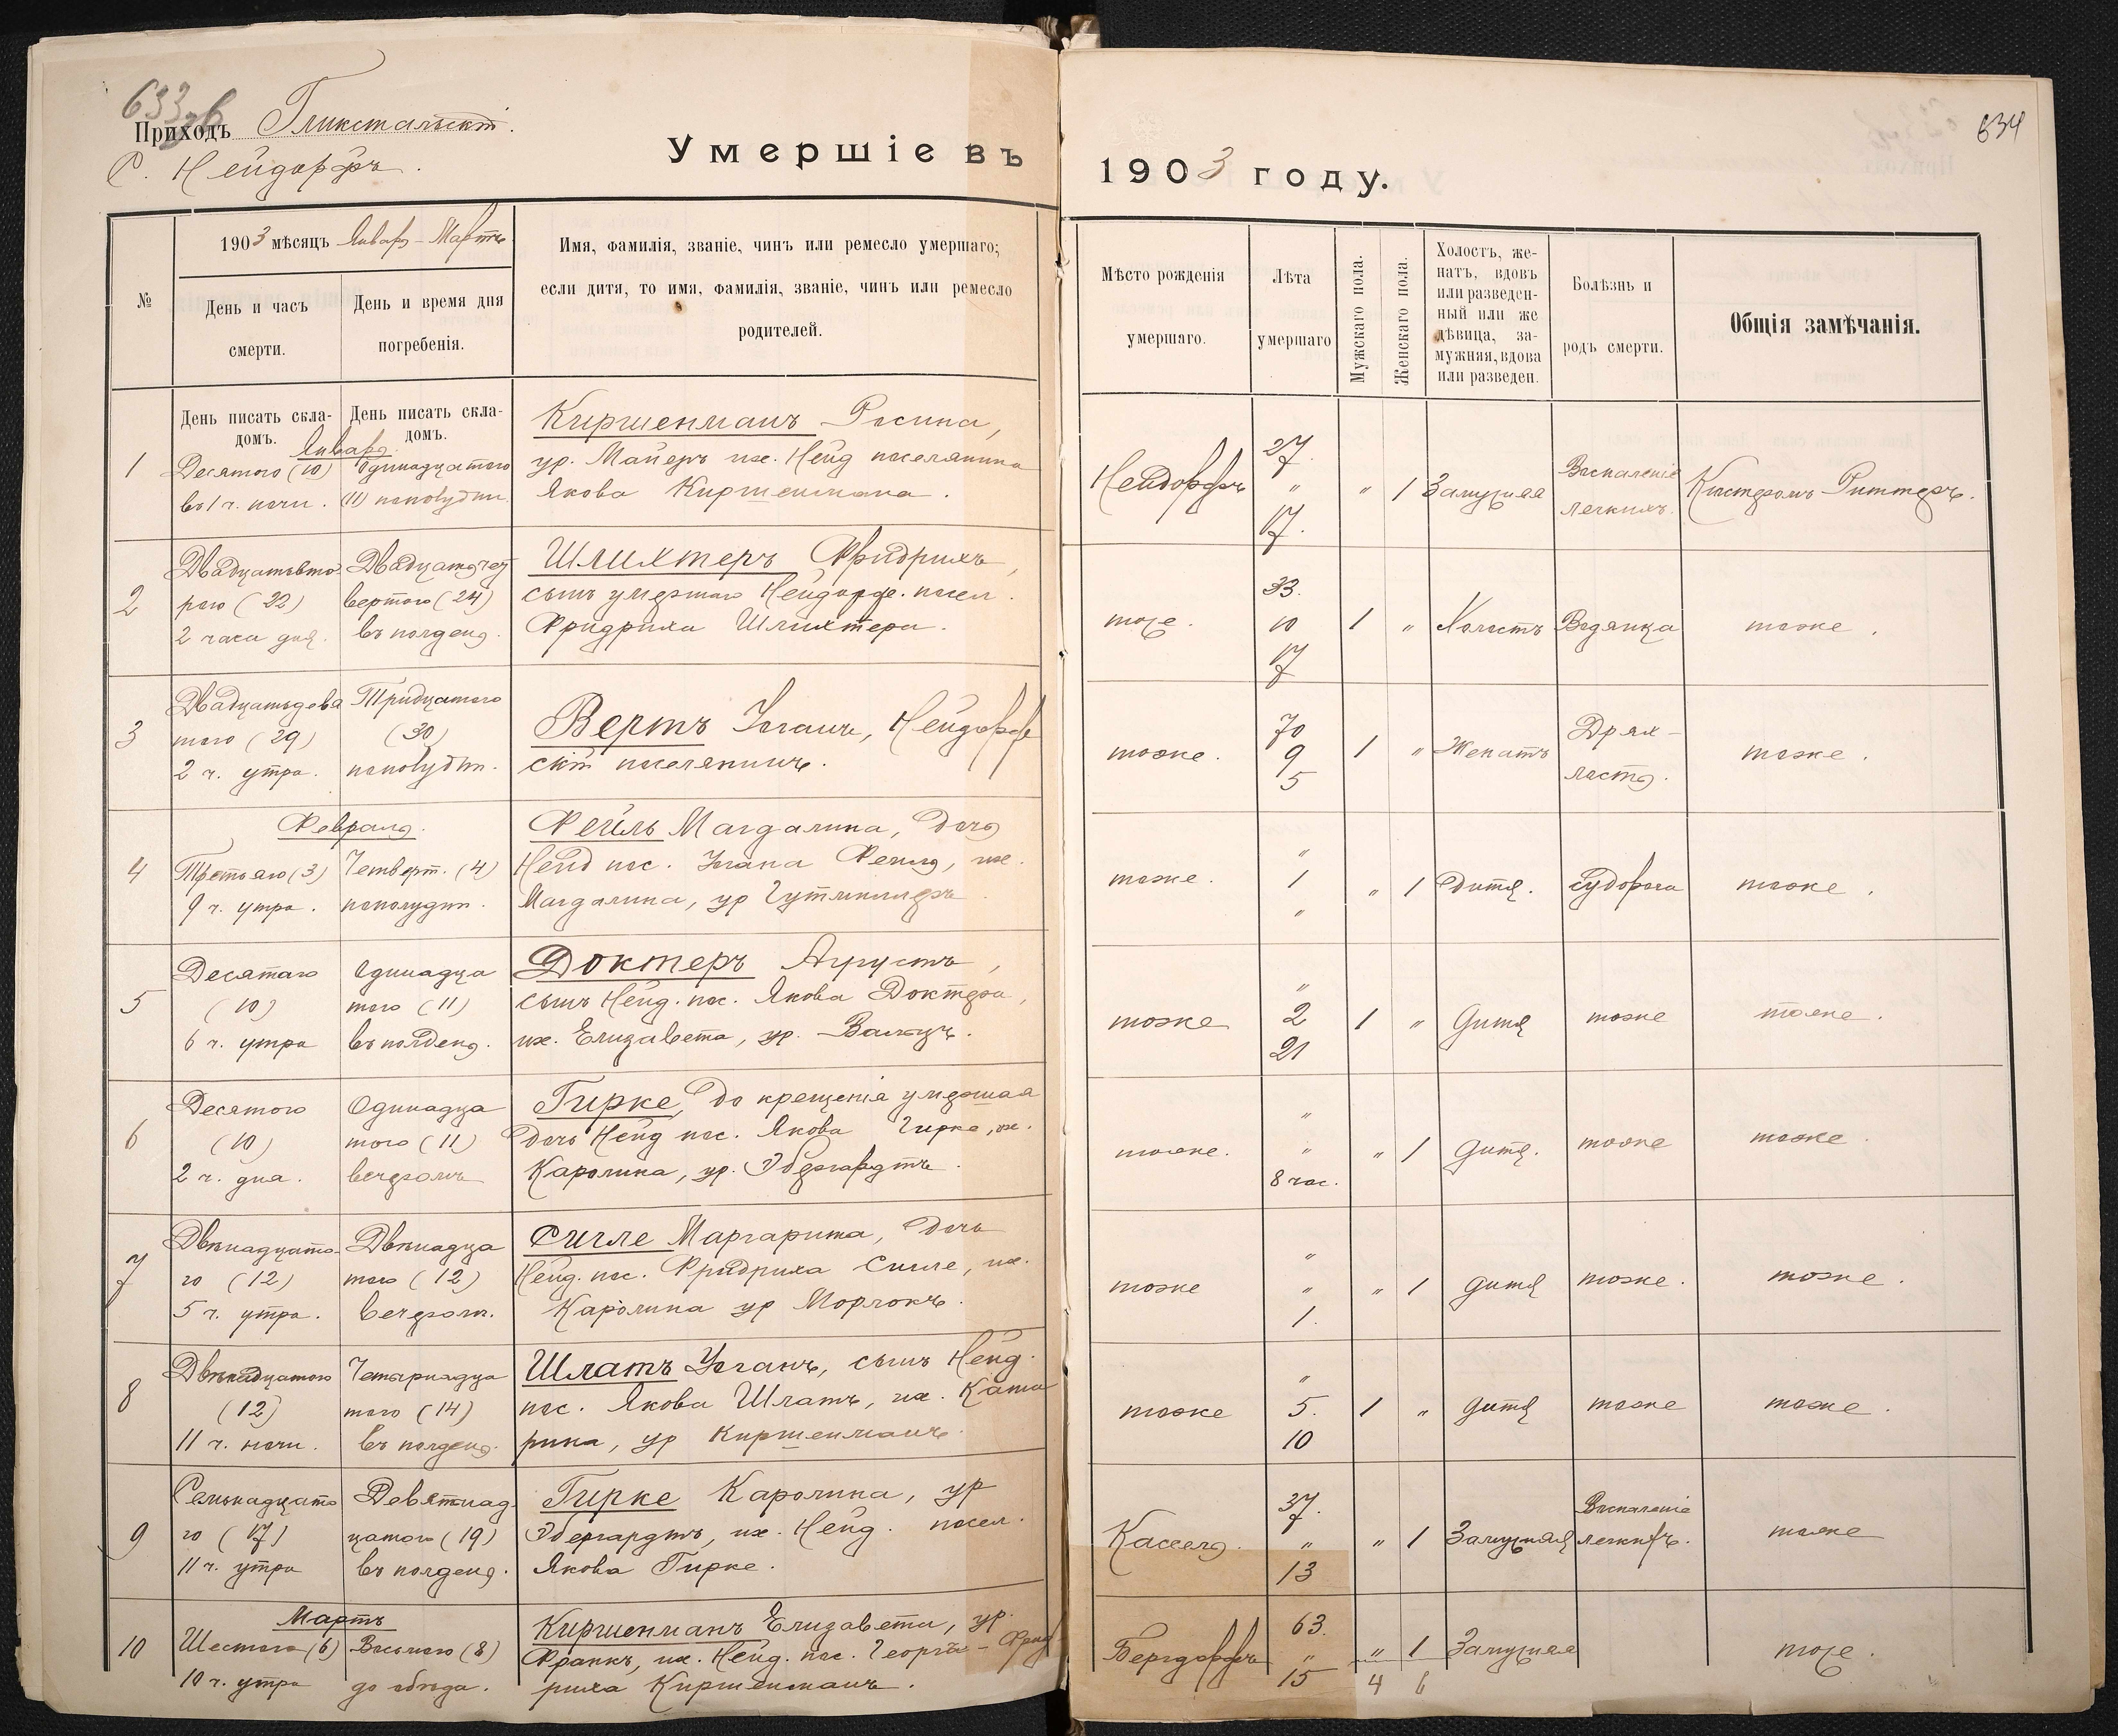 633 об
Приходъ Гликстальскій.
С. Нейдорфъ.
Умершіе въ
1903 году.
634
№
1903 мѣсяцъ Январь - Мартъ
День и часъ
смерти.
День и время дня
погребенія.
Имя, фамилія, званіе, чинъ или ремесло умершаго;
если дитя, то имя, фамилія, званіе, чинъ или ремесло
родителей.
Мѣсто рожденія
умершаго.
Лѣта
умершаго
Мужскаго пола.
Женскаго пола.
Холостъ, же-
натъ, вдовъ
или разведен-
ный или же
дѣвица, за-
мужняя, вдова
или разведен.
Болѣзнь и
родъ смерти.
Общія замѣчанія.
День писать скла-
домъ.
День писать скла-
домъ.
Январь.
1
Десятого (10)
въ 1 ч. ночи.
Одинадцатого
(11) пополудни.
Киршенманъ Росина,
ур. Майеръ иж. Нейд поселянина
Якова Киршенмана.
Нейдорфъ
27.
"
17.
"
1
Замужняя
Воспаленіе
легкихъ.
Кистеромъ Риттеръ.
2
Двадцатьвто-
раго (22)
2 часа дня.
Двадцатьчет
вертого (24)
въ полдень.
Шлихтеръ Фридрихъ,
сынъ умершаго Нейдорф. посел.
Фридриха Шлихтера.
тоже.
33.
10
17
1
"
Холостъ
Водянка
тоже.
3
Двадцатьдевя
таго (29)
2 ч. утра.
Тридцатого
(30)
пополудни.
Вертъ Іоганъ, Нейдорф
скій поселянинъ.
тоже.
70
9
5
1
"
Женатъ
Дрях-
лость.
тоже.
Февраль.
4
Третьяго (3)
9 ч. утра.
Четверт. (4)
пополудни.
Фейль Магдалина, дочь
Нейд пос. Іогана Фейль, иж.
Магдалина, ур
тоже.
"
1
"
"
1
Дитя.
Судорога
тоже.
5
Десятаго
(10)
6 ч. утра
Одинадца
того (11)
въ полдень.
Доктеръ Августъ,
сынъ Нейд. пос. Якова Доктера,
иж. Елизавета, ур. Вальцъ.
тоже
"
2
21
1
"
дитя
тоже
тоже.
6
Десятого
(10)
2 ч. дня.
Одинадца
того (11)
вечеромъ
Гирке, до крещенія умершая
дочь Нейд пос. Якова Гирке, иж.
Каролина, ур. Эбергардтъ.
тоже.
"
"
8 час.
"
1
дитя.
тоже
тоже.
7
Двѣнадцата-
го (12)
5 ч. утра.
Двѣнадца
таго (12)
вечером.
Сигле Маргарита, дочь
Нейд. пос. Фридриха Сигле, иж.
Каролина ур Морлокъ.
тоже
"
"
1.
"
1
дитя
тоже.
тоже.
8
Двѣнадцатого
(12)
11 ч. ночи.
Четырнадца
таго (14)
въ полдень.
Шлатъ Іоганъ, сынъ Нейд.
пос. Якова Шлатъ, иж. Кате
рина, ур Киршенманъ.
тоже
"
5.
10
1
"
дитя
тоже
тоже.
9
Семнадцато
го (17)
11 ч. утра
Девятнад
цатого (19)
въ полдень.
Гирке Каролина, ур
Эбергардтъ, иж. Нейд. посел.
Якова Гирке.
Кассель.
37.
"
13
"
1
Замужняя
Воспаленіе
легкихъ.
тоже
Мартъ
10
Шестого (6)
10 ч. утра
Восьмого (8)
до обѣда.
Киршенманъ Елизавета, ур.
Франкъ, иж. Нейд. пос. Георгъ-Фрид
риха Киршенманъ.
Бергдорфъ
63.
"
15
"
1
Замужняя
тоже.
4
6